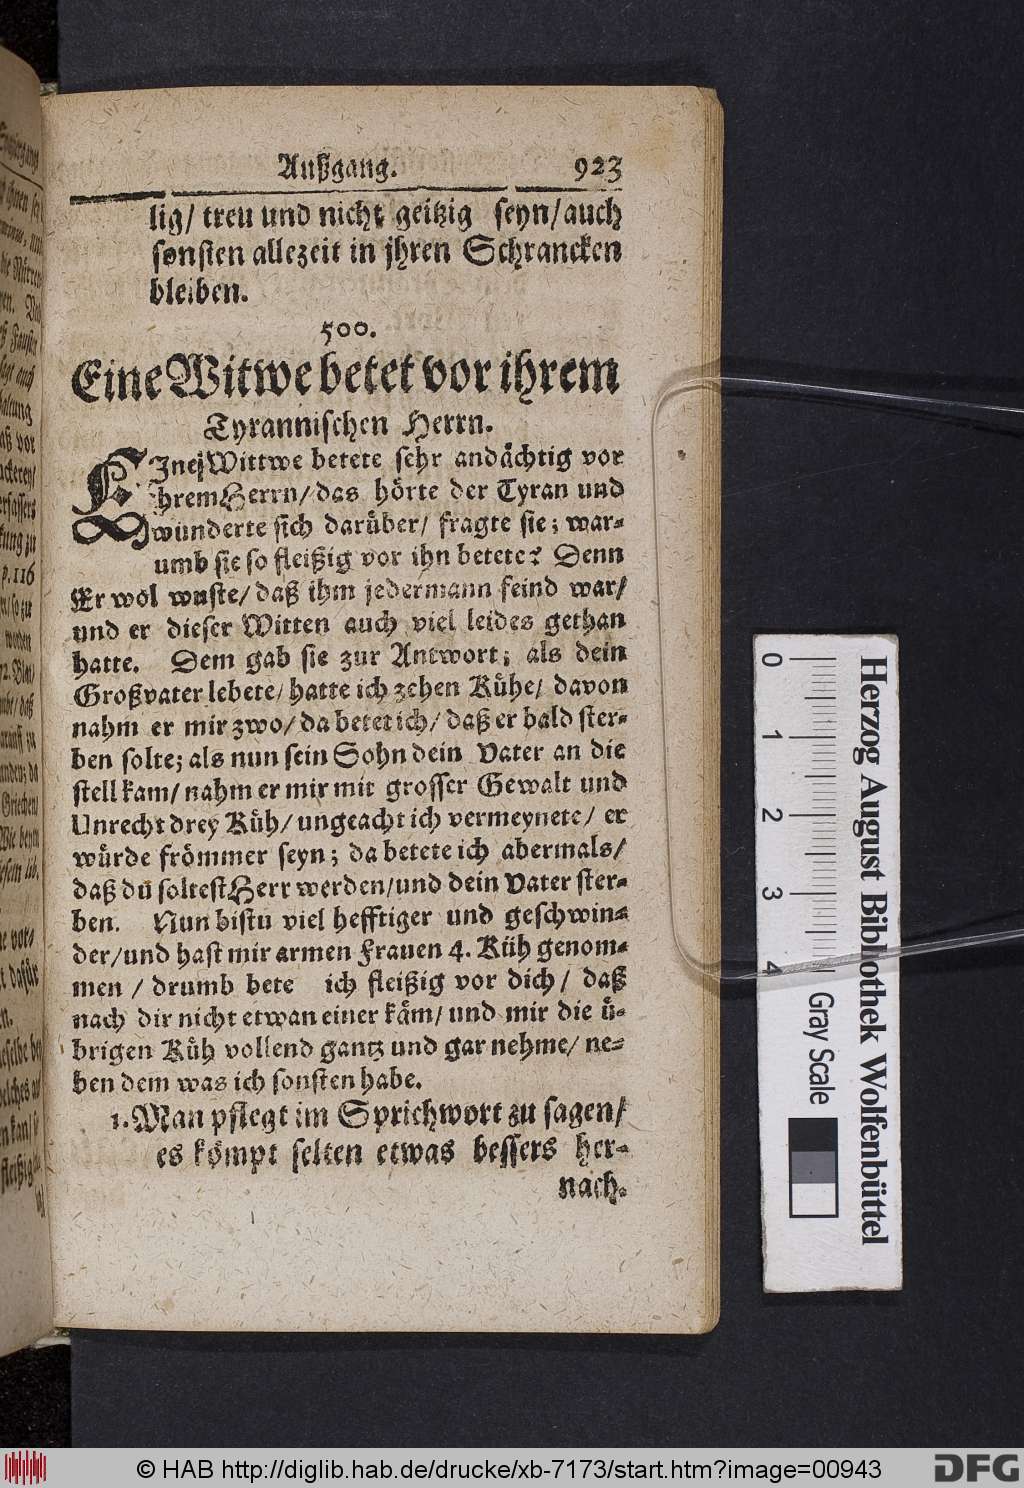 Außgang. 923
lig/ treu und nicht geitzig seyn/ auch
sonsten allezeit in jhren Schrancken
bleiben.
500.
Eine Witwe betet vor ihrem
Tyrannischen Herrn.
EInej Wittwe betete sehr andächtig vor
ihrem Herrn/ das hörte der Tyran und
wunderte sich darüber/ fragte sie; war-
umb sie so fleißig vor ihn betete? Denn
Er wol wuste/ daß ihm jedermann feind war/
und er dieser Witten auch viel leides gethan
hatte. Dem gab sie zur Antwort; als dein
Großvater lebete/ hatte ich zehen Kühe/ davon
nahm er mir zwo/ da betet ich/ daß er bald ster-
ben solte; als nun sein Sohn dein Vater an die
stell kam/ nahm er mir mit grosser Gewalt und
Unrecht drey Küh/ ungeacht ich vermeynete/ er
würde frömmer seyn; da betete ich abermals/
daß du soltest Herr werden/ und dein Vater ster-
ben. Nun bistu viel hefftiger und geschwin-
der/ und hast mir armen Frauen 4. Küh genom-
men / drumb bete ich fleißig vor dich/ daß
nach dir nicht etwan einer käm/ und mir die ü-
brigen Küh vollend gantz und gar nehme/ ne-
ben dem was ich sonsten habe.
1. Man pflegt im Sprichwort zu sagen/
es kömpt selten etwas bessers her-
nach.
0 1 2 3 4
Gray Scale
Herzog August Bibliothek Wolfenbüttel
© HAB http://diglib.hab.de/drucke/xb-7173/start.htm?image=00943
DFG